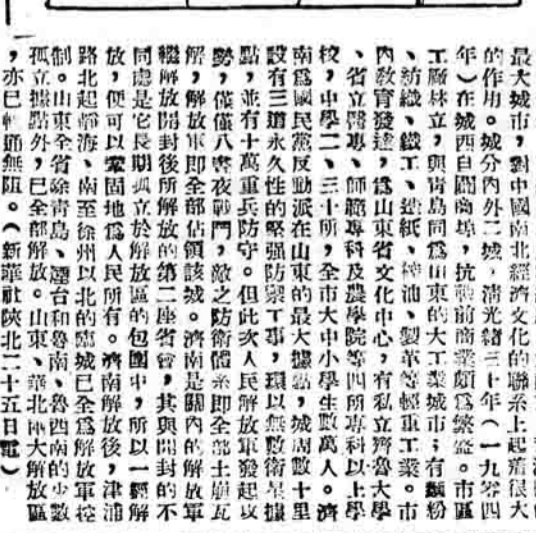 最大城市,對中國南北經濟文化的聯系上起着很大
的作用。城分內外二城,淸光緒三十年(一九零四
年)在城西自闢商埠,抗戰前商業頗爲繁盛。市區
工廠林立,與靑島同爲山東的大工業城市;有麵粉
、紡織、鐵工、造紙、神油、製革等輕重工業。市
內敎育發達,爲山東省文化中心,有私立齊魯大學
、省立醫專、師範專科及農學院等四所專科以上學
校,中學二、三十所,全市大中小學生數萬人。濟
南爲國民黨反動派在山東的最大據點,城周數十里
設有三道永久性的堅强防禦工事,環以無數衛星據
點,並有十萬重兵防守。但此次人民解放軍發起攻
勢,僅僅八晝夜戰鬥,敵之防衛體系即全部土崩瓦
解,解放軍即全部佔領該城。濟南是關內的解放軍
繼解放開封後所解放的第二座省會,其與開封的不
同處是它長期孤立於解放區的包圍中,所以一經解
放,便可以鞏固地爲人民所有。濟南解放後,津浦
路北起靜海、南至徐州以北的臨城已全爲解放軍控
制。山東全省除靑島、煙台和魯南、魯西南的少數
孤立據點外,已全部解放。山東、華北兩大解放區
,亦已暢通無阻。(新華社陝北二十五日電)